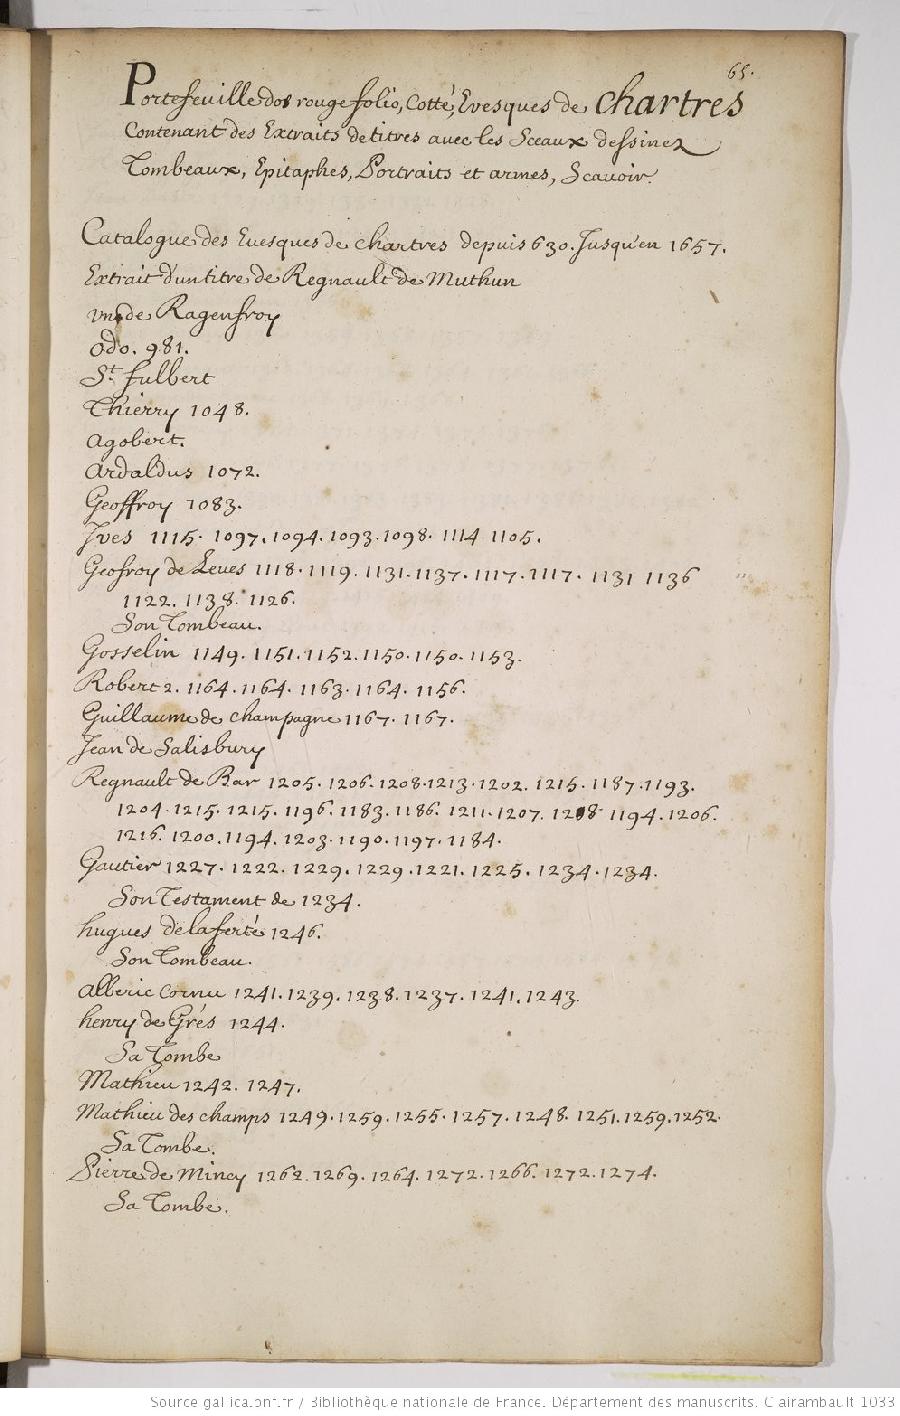 65.
Portefeuille dos rouge folio, Cotté, Evesques de Chartres
Contenant des Extraits de titres avec les Sceaux dessinez
Tombeaux, Epitaphes, Portraits et armes, Scavoir.
Catalogue des Evesques de Chartres depuis 630. Jusqu'en 1657.
Extrait d'un titre de Regnault de Muthun
un de Ragenfroy
Odo. 981.
St. fulbert
Thierry 1048.
Agobert.
Ardaldus 1072.
Geoffroy 1083.
Jves 1115. 1097. 1094. 1093. 1098. 1114 1105.
Geofroy de Leues 1118. 1119. 1131. 1137. 1117. 1117. 1131 1136
1122. 1138. 1126.
Son Tombeau.
Gosselin 1149. 1151. 1152. 1150. 1150. 1153.
Robert 2. 1164. 1164. 1163. 1164. 1156.
Guillaume de Champagne 1167. 1167.
Jean de Salisbury
Regnault de Bar 1205. 1206. 1208. 1213. 1202. 1215. 1187. 1193.
1204. 1215. 1215. 1196. 1183. 1186. 1211. 1207. 1194. 1206.
1216. 1200. 1194. 1203. 1190. 1197. 1184.
Gautier 1227. 1222. 1229. 1229. 1221. 1225. 1234. 1234.
Son Testament de 1234.
hugues de la ferté 1246.
Son Tombeau.
Alberic Cornu 1241. 1239. 1238. 1237. 1241. 1243.
henry de Grés 1244.
Sa Tombe
Mathieu 1242. 1247.
Mathieu des champs 1249. 1259. 1255. 1257. 1248. 1251. 1259. 1252.
Sa Tombe.
Pierre de Mincy 1262. 1269. 1264. 1272. 1266. 1272. 1274.
Sa Tombe.
Source gallica.bnf.fr / Bibliothèque nationale de France. Département des manuscrits. Clairambault 1033